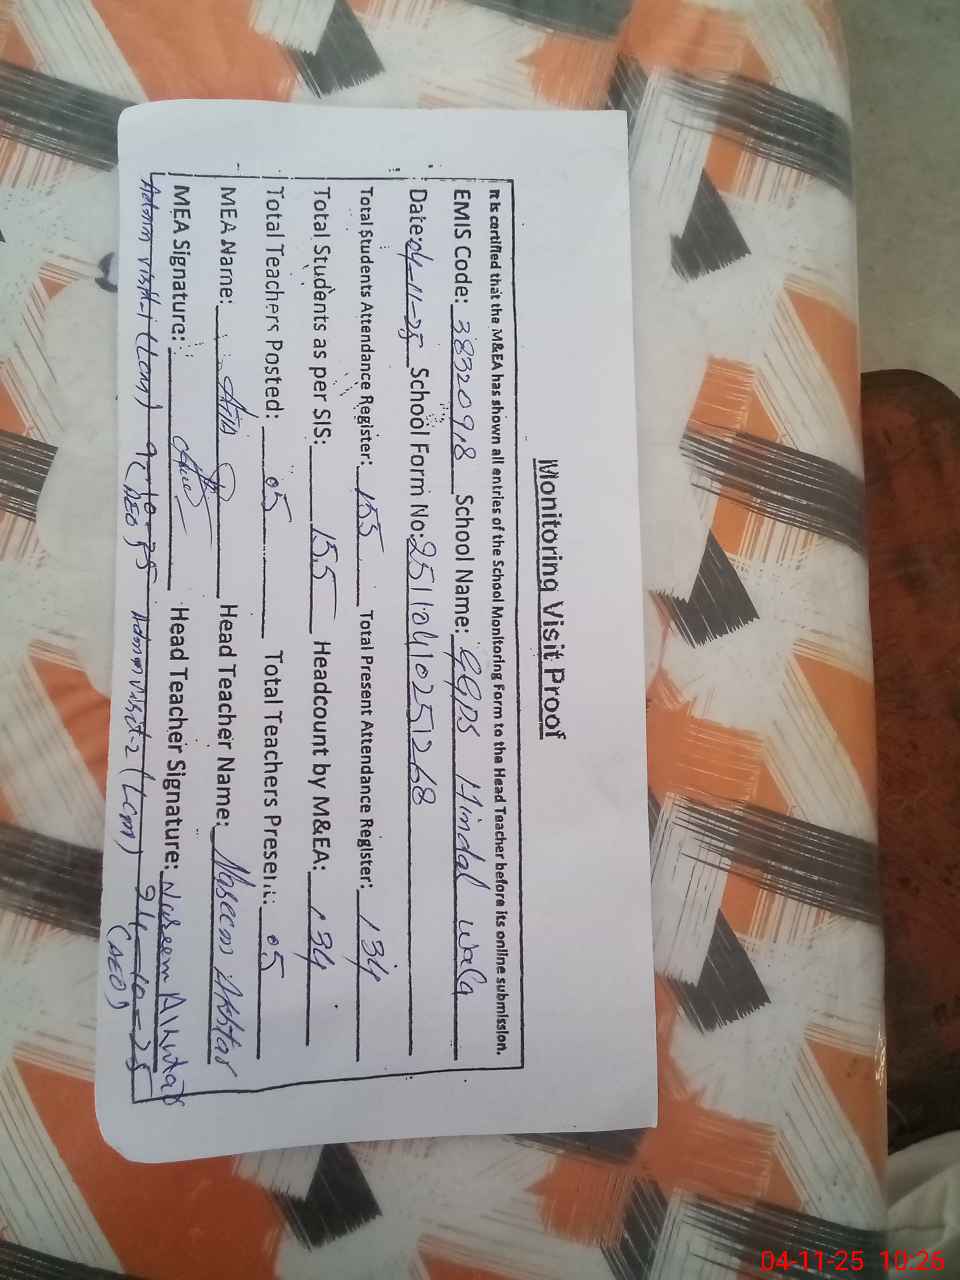 Monitoring Visit Proof
It is certified that the M&EA has shown all entries of the School Monitoring Form to the Head Teacher before its online submission.
EMIS Code: 38320918 School Name: GGPS Hindal wala
Date: 04-11-25 School Form No: 25110410251268
Total Students Attendance Register: 155 Total Present Attendance Register: 134
Total Students as per SIS: 155 Headcount by M&EA: 134
Total Teachers Posted: 05 Total Teachers Present: 05
MEA Name: Head Teacher Name: Naseem Akhtar
MEA Signature: Head Teacher Signature: Naseem Akhtar
Admn visit-1 (Lcm) 9-10-25 Admn visit-2 (Lcm) 24-10-25
(AEO) (AEO)
04-11-25 10:26